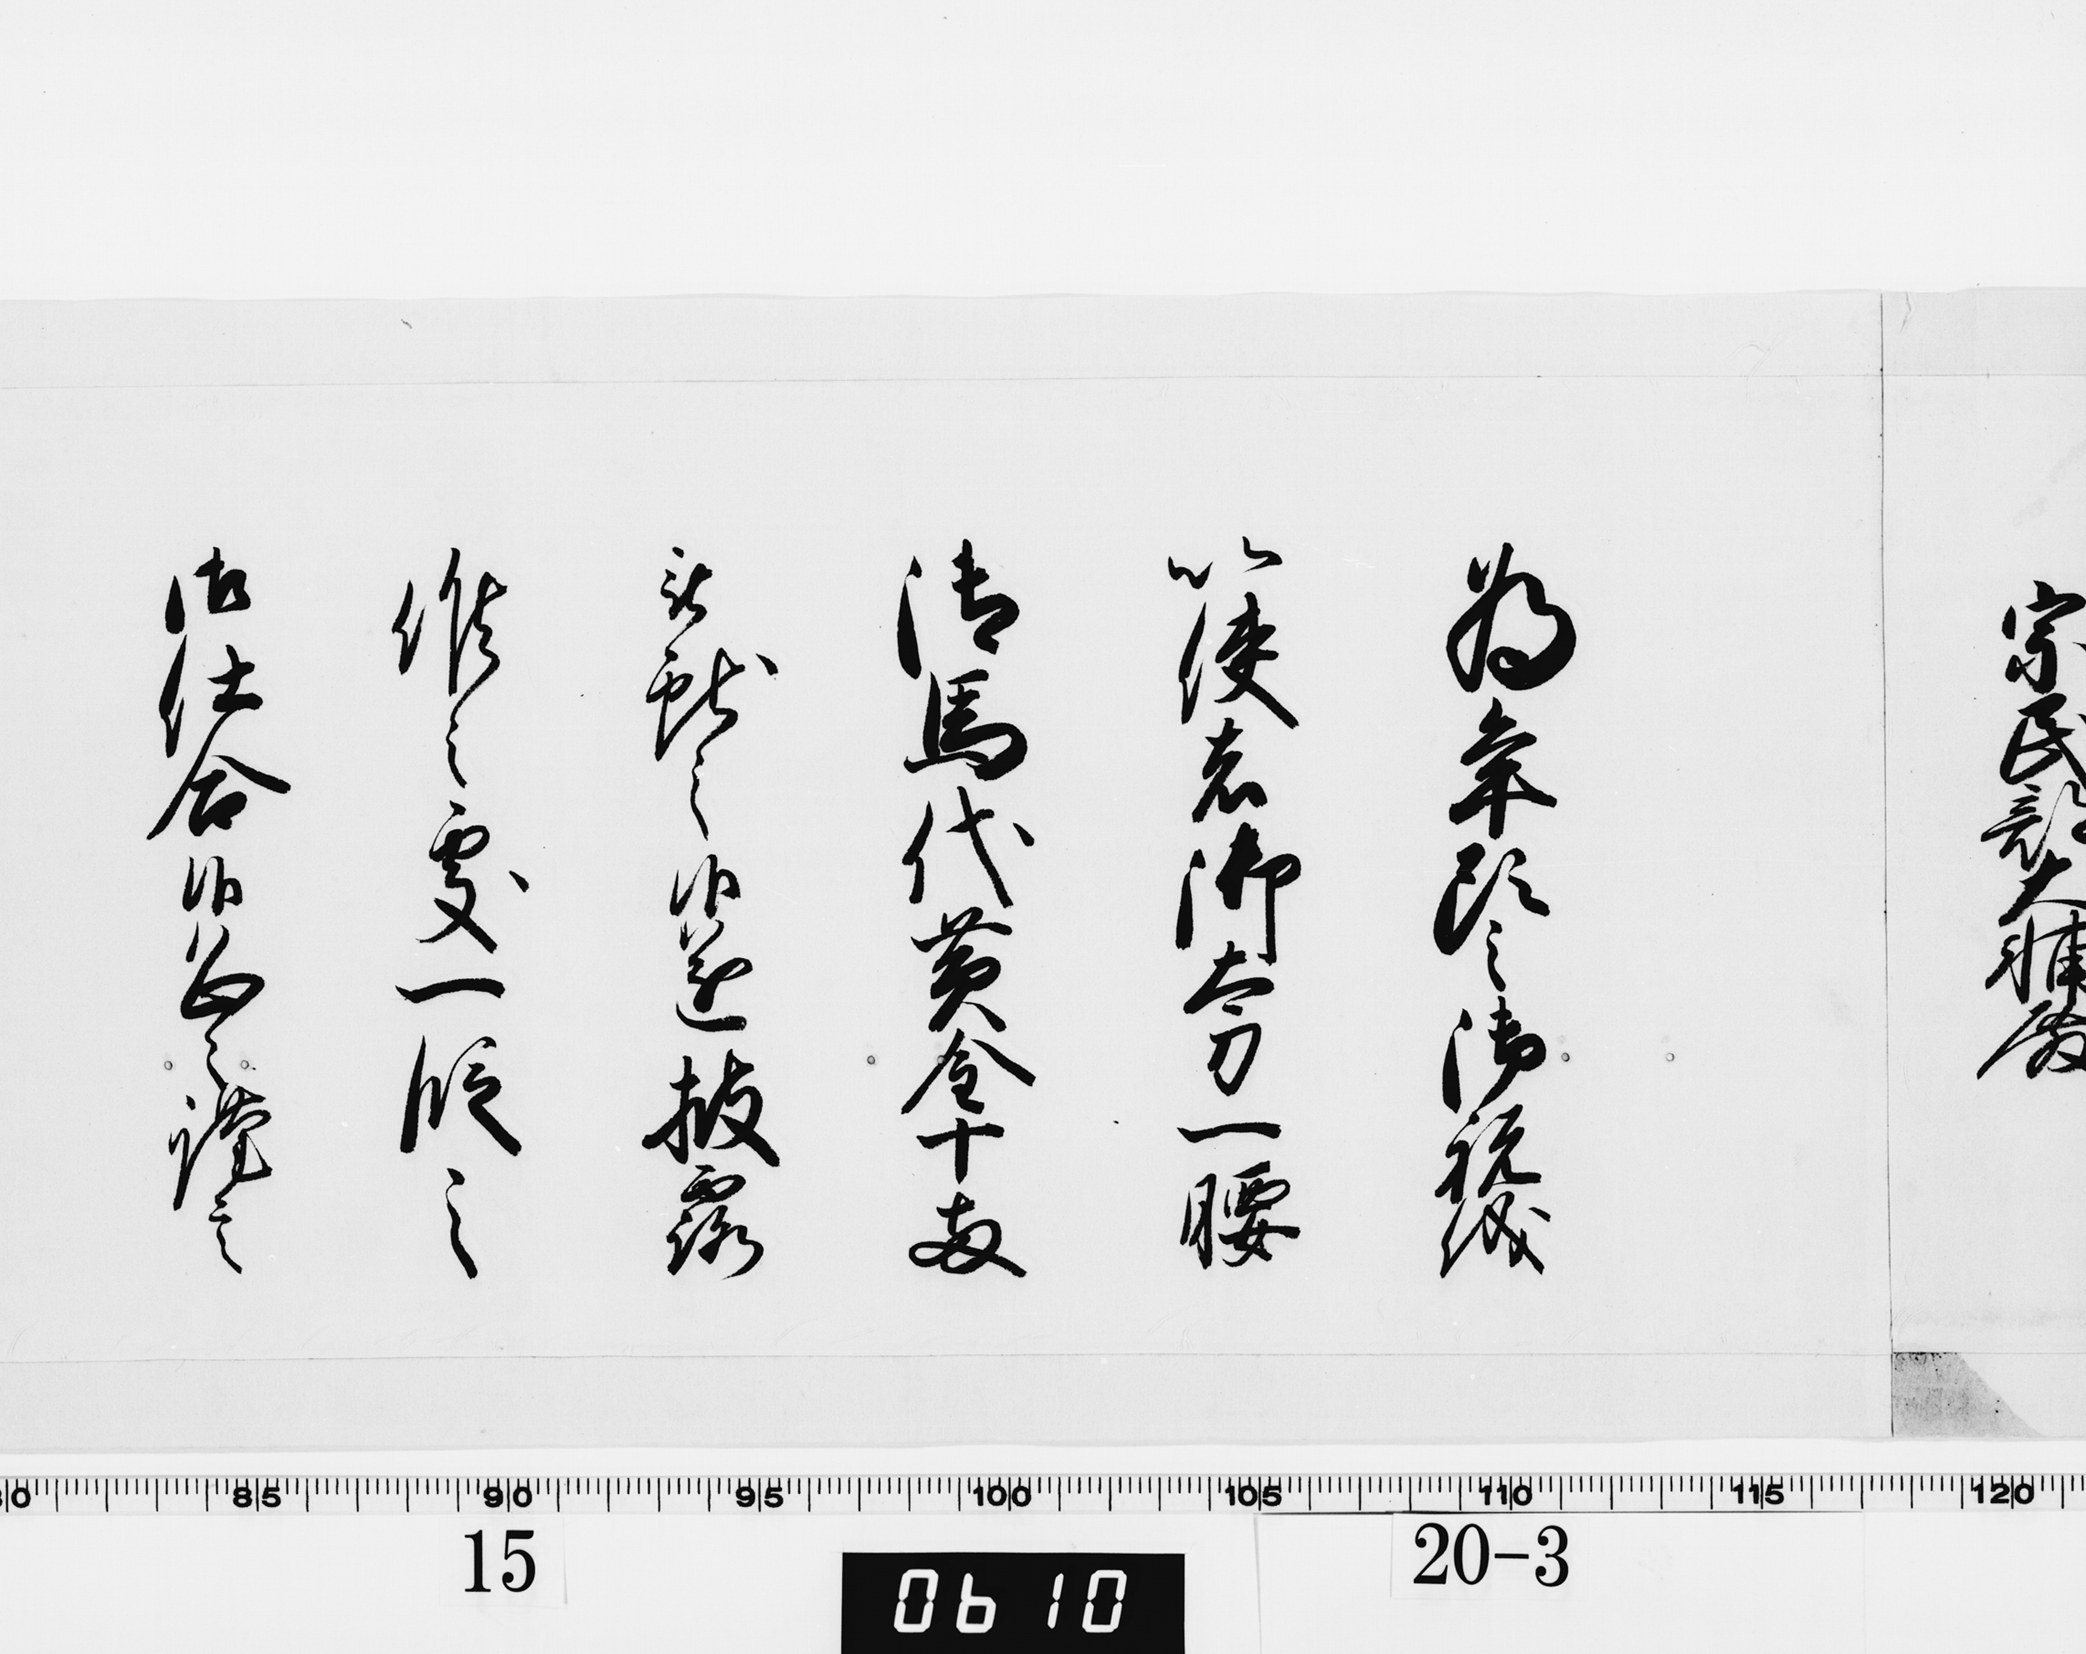 宗民部大輔殿
為年頭之御祝儀
以使者御太刀一腰
御馬代黄金十両
被献之候遂披露
候之處一段之
御仕合候恐々謹言
85 90 95 100 105 110 115 120
15
20-3
0610